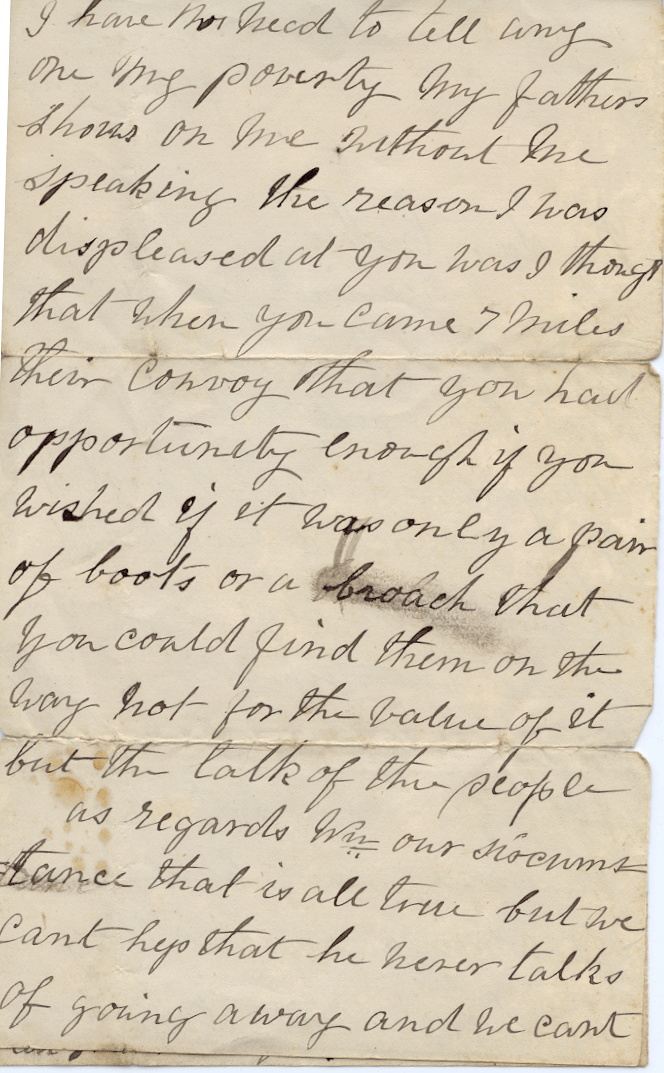 I have no need to tell any
one my poverty my fathers
shows on me without me
speaking the reason I was
displeased at you was I thougt
that when you came 7 miles
their convoy that you had
opportunity enough if you
wished if it was only a pair
of boots or a broach that
you could find them on the
way not for the value of it
but the talk of the people
as regards Wm our sircums
tance that is all true but we
cant hep that he never talks
of going away and we cant